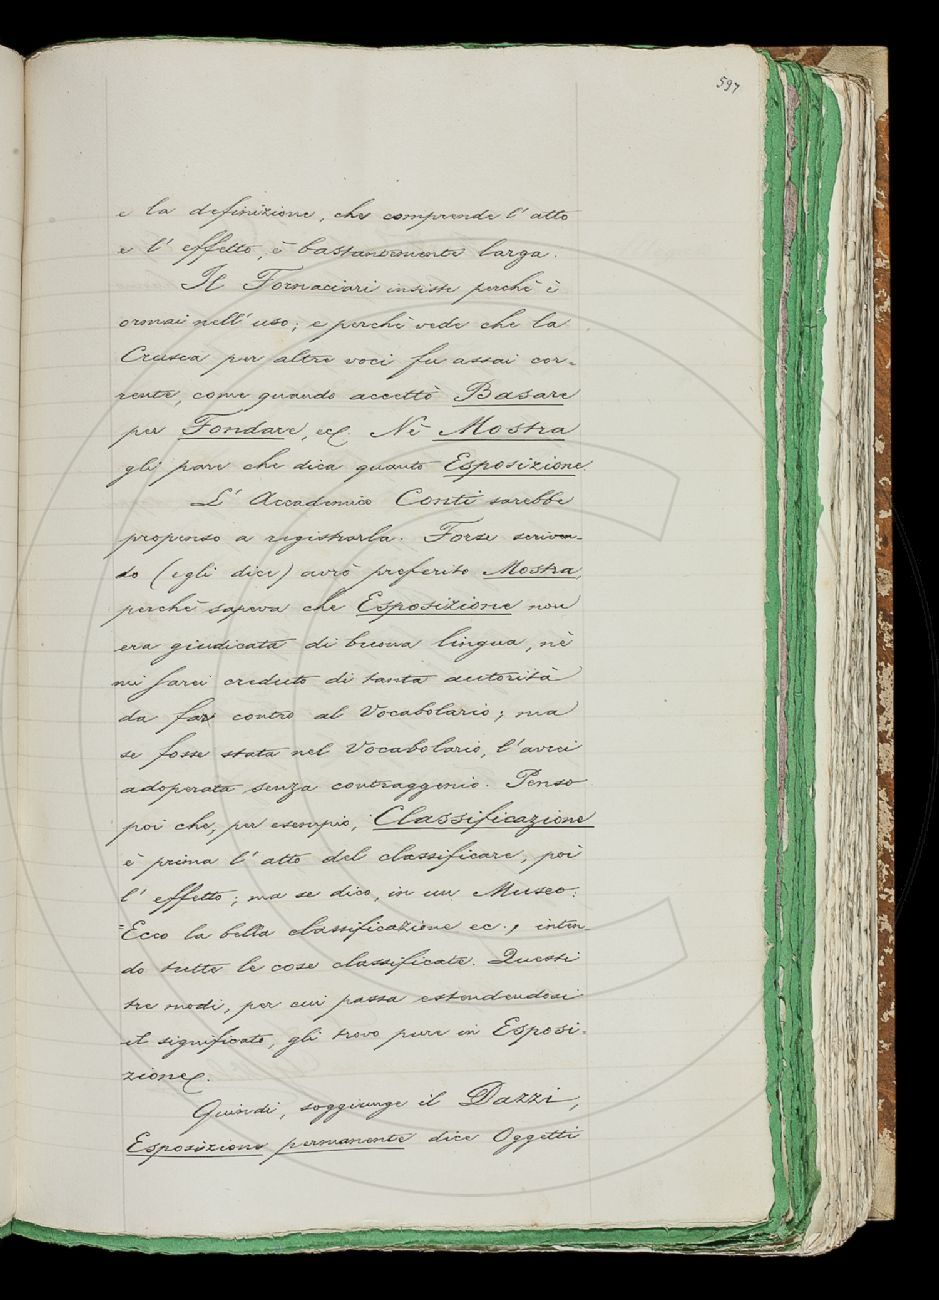 597
e la definizione, che comprende l'atto
e l'effetto, è bastantemente larga.
Il Fornaciari insiste perchè è
ormai nell'uso; e perchè vede che la
Crusca per altre voci fu assai cor-
rente, come quando accettò Basare
per Fondare, ec. Nè Mostra
gli pare che dica quanto Esposizione
L'Accademico Conti sarebbe
propenso a registrarla. Forse scriven-
do (egli dice) avrò preferito Mostra,
perchè sapeva che Esposizione non
era giudicata di buona lingua, nè
mi sarei creduto di tanta autorità
da far contro al Vocabolario; ma
se fosse stata nel Vocabolario, l'avrei
adoperata senza contraggenio. Penso
poi che, per esempio, Classificazione
è prima l'atto del classificare, poi
l'effetto; ma se dico, in un Museo:
"Ecco la bella classificazione ec., inten-
do tutte le cose classificate. Questi
tre modi, per cui passa estendendosi
il significato, gli trovo pure in Esposi-
zione.
Quindi, soggiunge il Dazzi,
Esposizione permanente dice Oggetti